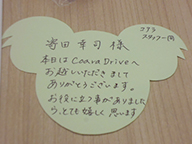 寄田幸司 様
本日は Coara Driveへ
お越しいただきまして
ありがとうございます。
お役に立つ事がありました
ら、とても嬉しく思います
コアラ
スタッフ一同